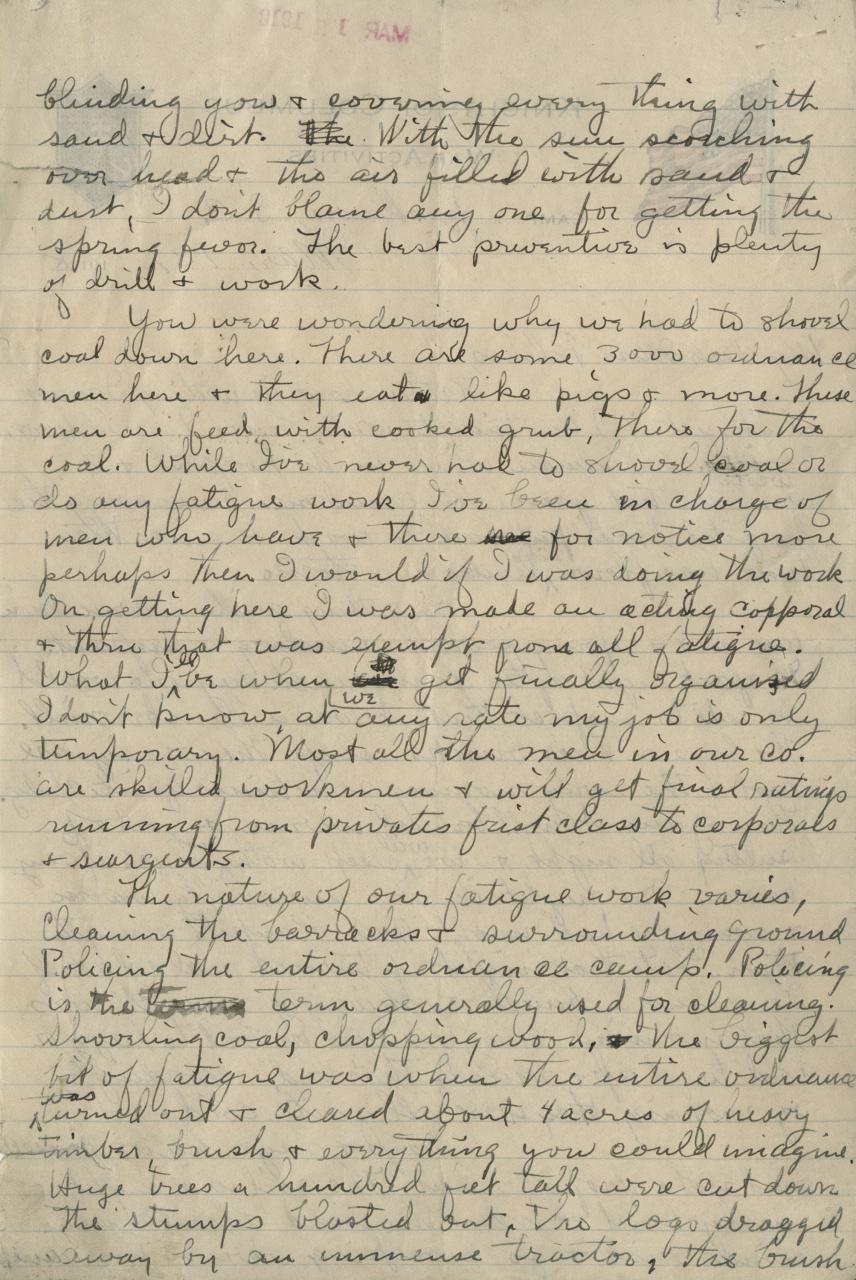 MAR 1 1918
blinding you & covering every thing with
sand & dirt. The With the sun scorching
over head & the air filled with sand &
dust, I don't blame any one for getting the
spring fevor. The best preventive is plenty
of drill & work.
You were wondering why we had to shovel
coal down here. There are some 3000 ordnance
men here & they eat like pigs & more. These
men are feed with cooked grub, there for the
coal. While I've never had to shovel coal or
do any fatigue work I've been in charge of
men who have & there for notice more
perhaps then I would if I was doing the work
On getting here I was made an acting copporal
& thru that was exempt from all fatigue.
What I'll be when we get finally organised
I don't know, at any rate my job is only
temporary. Most all the men in our co.
are skilled workmen & will get final ratings
running from privates frist class to corporals
& seargents.
The nature of our fatigue work varies,
Cleaning the barracks & surrounding ground
Policing the entire ordnance camp. Policing
is the term generally used for cleaning.
Shoveling coal, chopping wood, & the biggest
bit of fatigue was when the entire ordnance
was turned out & cleared about 4 acres of heavy
timber, brush & everything you could imagine.
Huge trees a hundred feet tall were cut down
the stumps blasted out, the logs dragged
away by an immense tractor, the brush